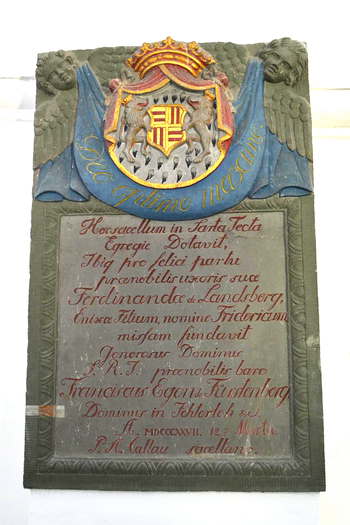 Deo optimo maximo
Hocsacellum in Sarta Tecta
Egregie Dotavit,
Ibiq pro felici partu
prænobilis uxoris suæ
Ferdinandæ de Landsberg,
Enixæ Filium, nomine Fridericum
missam fundavit
Generosus Dominus
S. R. J. prænobilis baro
Franciscus Egon a Furstenberg,
Dominus in
A. MDCCXXVII. 12
P. A. sacellano.